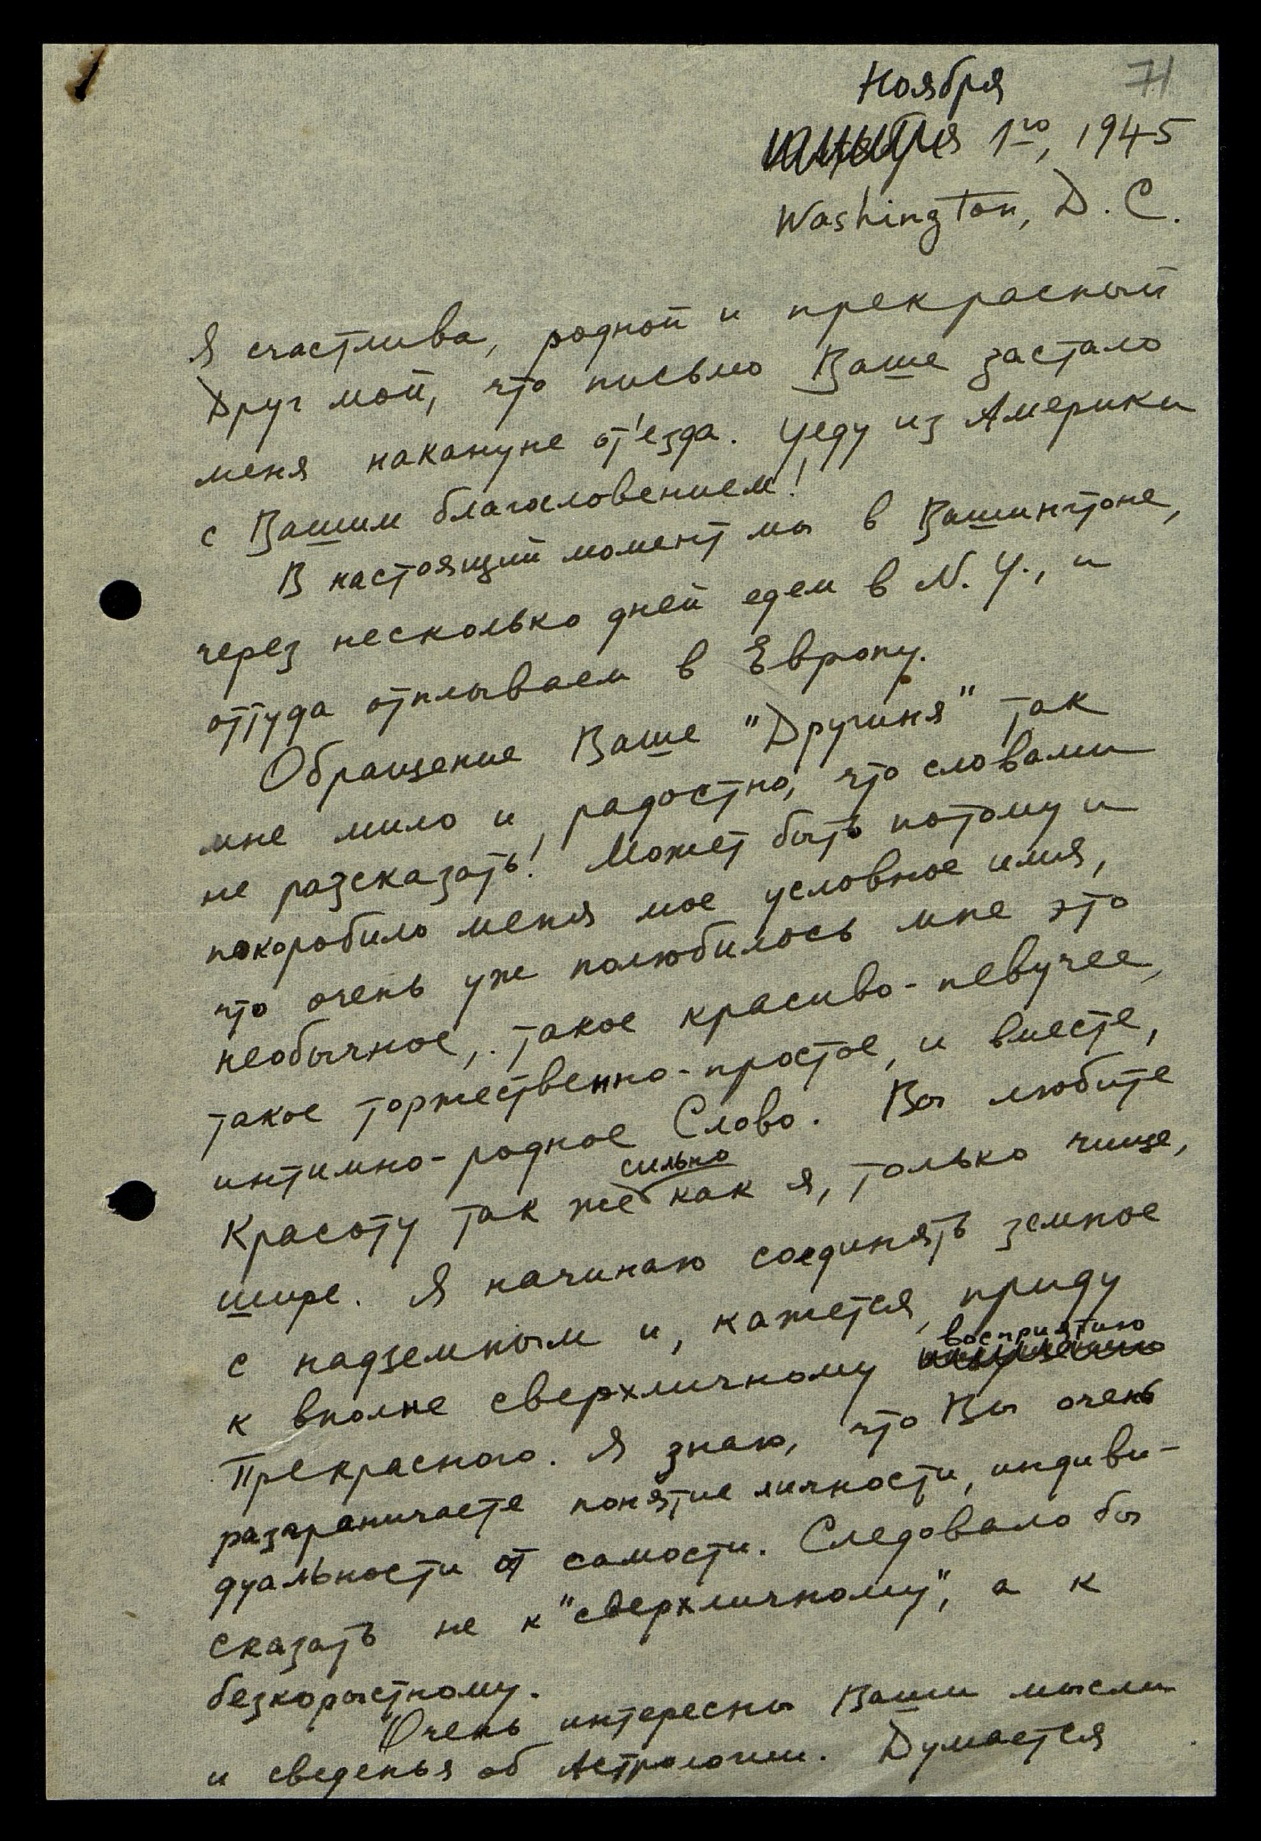 71
Ноября
1го, 1945
Washington, D.C.
Я счастлива, родной и прекрасный
Друг мой, что письмо Ваше застало
меня накануне от'езда. Уеду из Америки
с Вашим благословением!
В настоящий момент мы в Вашингтоне,
через несколько дней едем в N.Y., и
оттуда отплываем в Европу.
Обращение Ваше "Другиня" так
мне мило и радостно, что словами
не разсказать! Может быть потому и
покоробило меня мое условное имя,
что очень уж полюбилось мне это
необычное, такое красиво-певучее,
такое торжественно-простое, и вместе,
интимно-родное Слово. Вы любите
Красоту так же сильно как я, только чище,
шире. Я начинаю соединять земное
с надземным и, кажется, приду
к вполне сверхличному восприятию
Прекрасного. Я знаю, что Вы очень
разграничаете понятие личности, индиви-
дуальности от самости. Следовало бы
сказать не к "сверхличному", а к
безкорыстному.
Очень интересны Ваши мысли
и сведенья об Астрологии. Думается